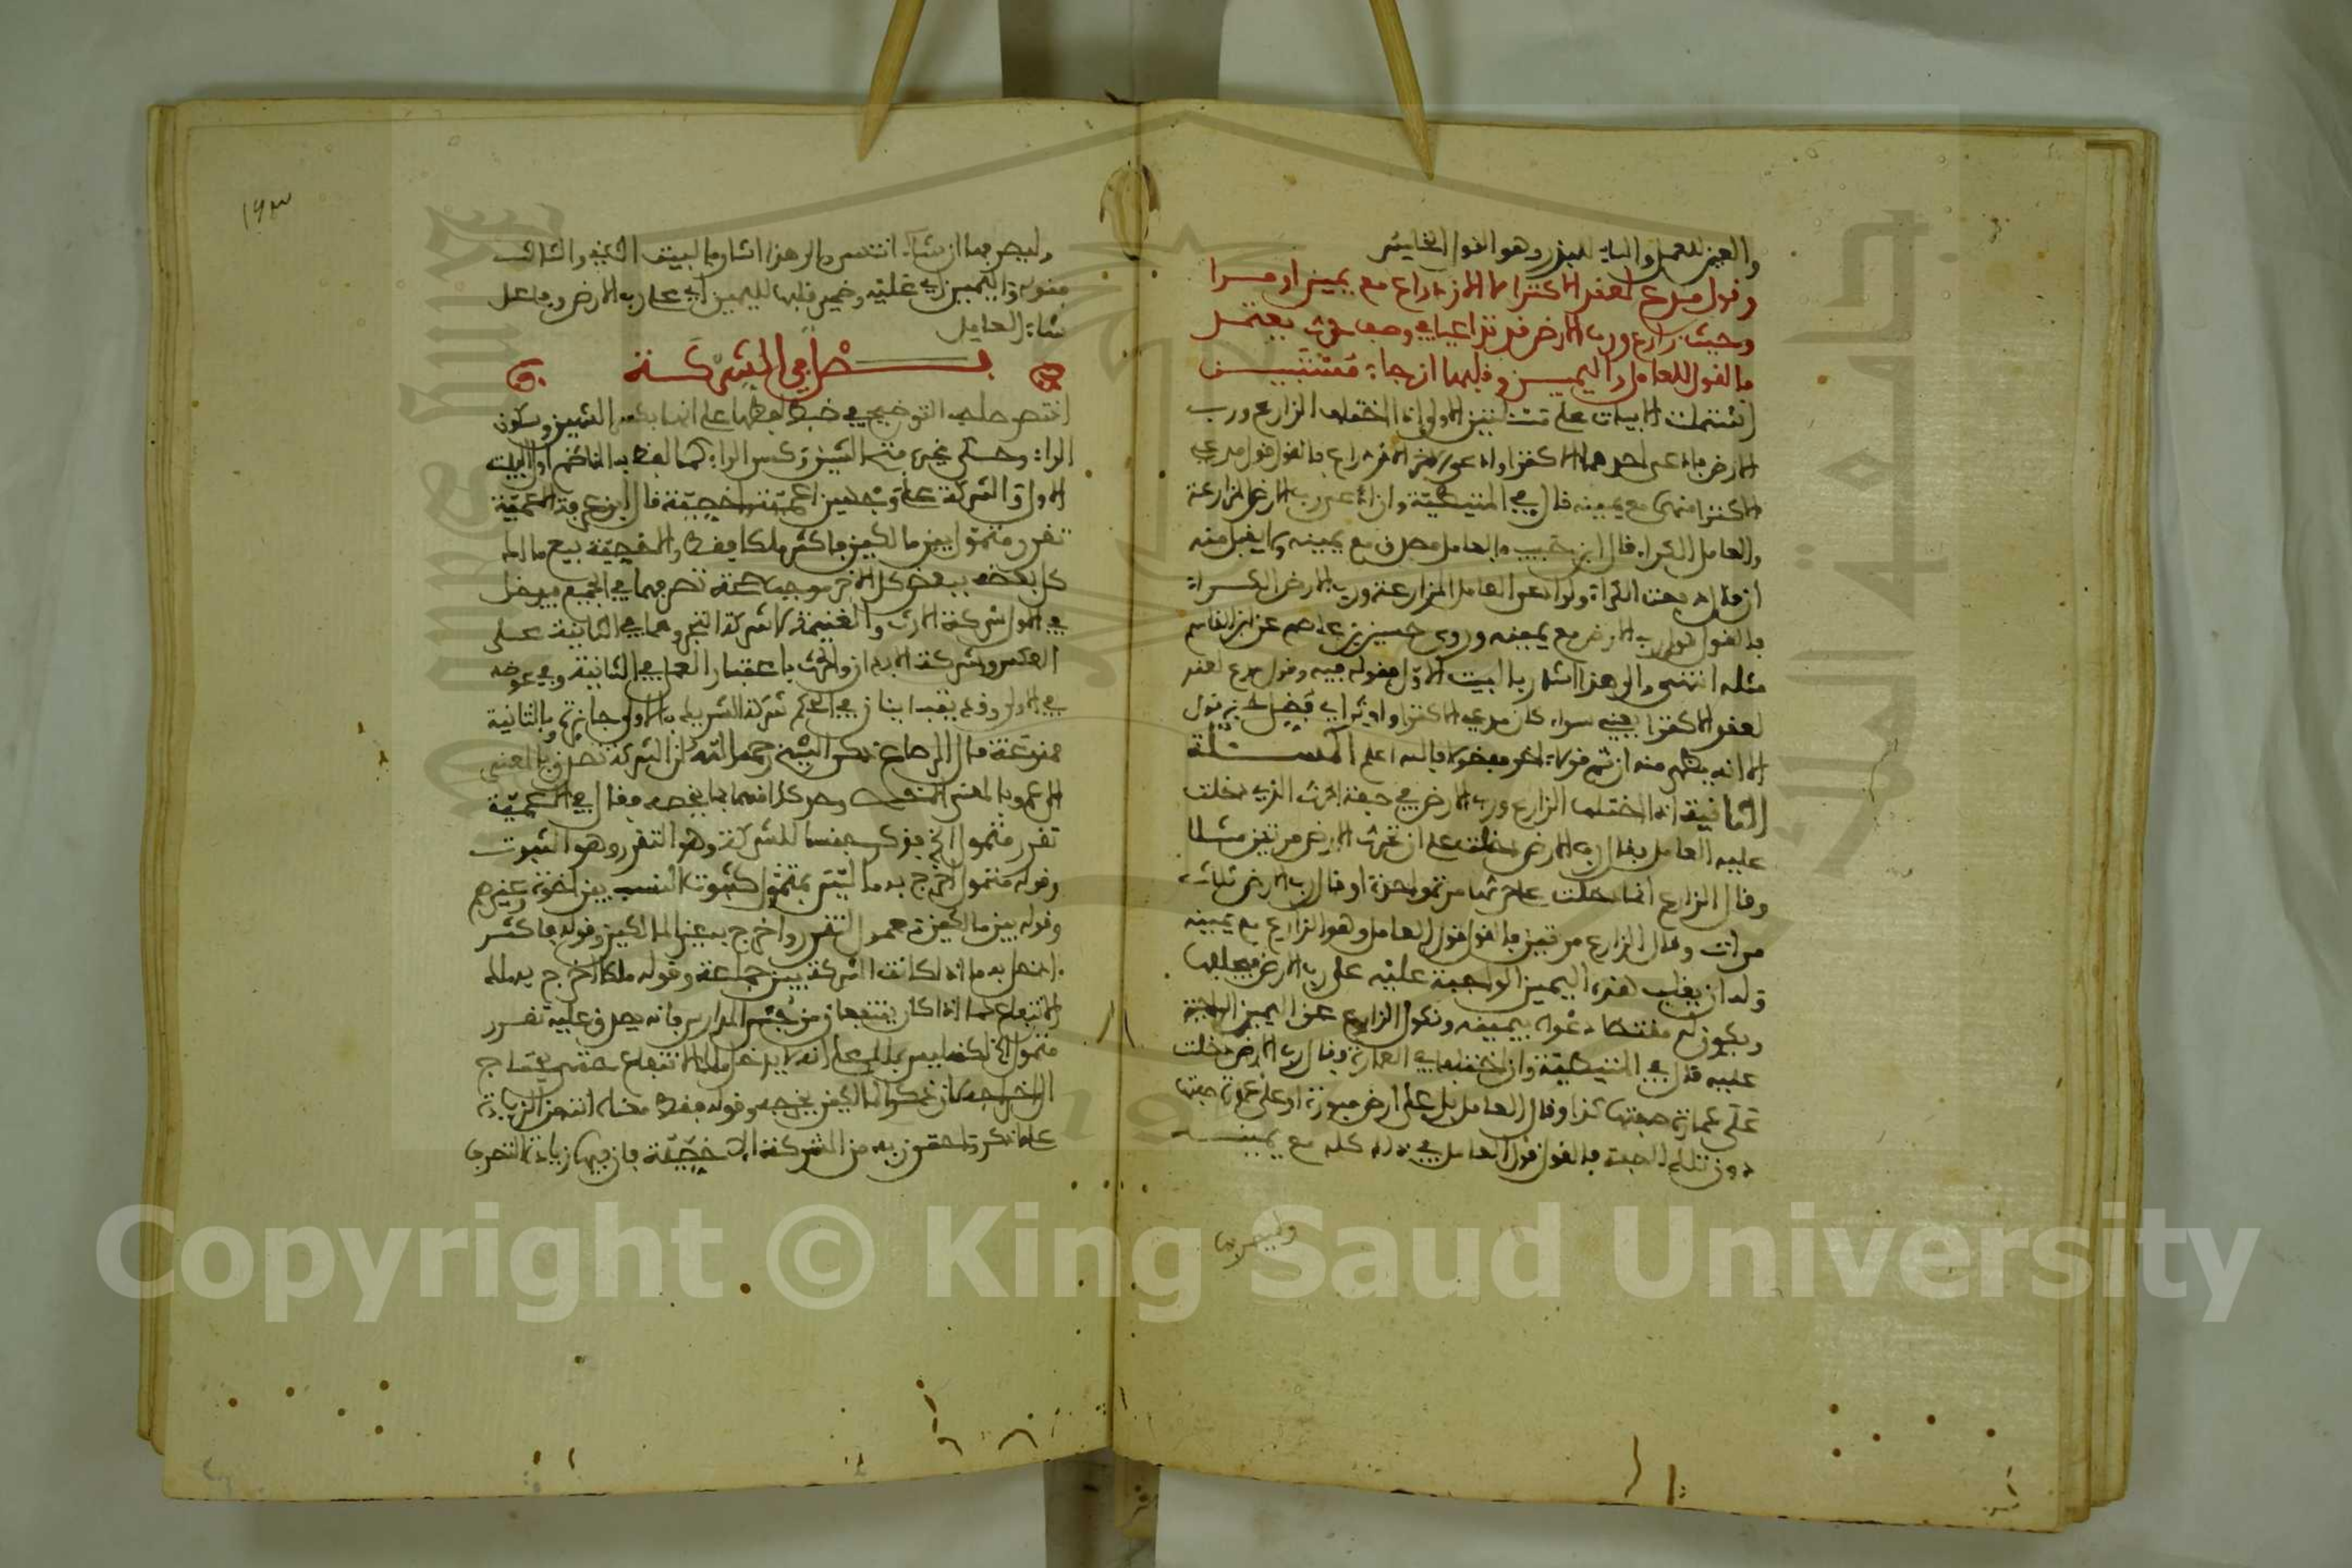 والعين للعمل والباء للبذر وهو القول الخامس
وقول مدع لعقد الاكترا لا الازدراع مع يمين اوثرا
وحيث زارع ورب الارض قد تداعيا في وصف حرث يعتمد
فالقول للعامل واليمين وقلبها ان شاء مستبين
اشتملت الابيات على مسئلتين الاولى اذا اختلف الزارع ورب
الارض فادعى احدهما الاكترا وادعى الاخر الازدراع فالقول قول مدعي
الاكترا منهما مع يمينه قال في المتيطية وان ادعى رب الارض المزارعة
والعامل الكراء قال ابن حبيب فالعامل مصدق مع يمينه ولا يقبل منه
ان قال دفعت الكراء ولو ادعى العامل المزارعة ورب الارض الكراء
فالقول قول رب الارض مع يمينه وروى حسين بن عاصم عن ابن القاسم
مثله انتهى والى هذا اشار بالبيت الاول فقوله فيه وقول مدع لعقد
لعقد الاكترا يعني سواء كان مدعي الاكترا
الا انه يظهر منه ان ثم قولا اخر والله اعلم المسئلة
الثانية اذا اختلف الزارع ورب الارض في صفة الحرث الذي دخلت
عليه العامل فقال رب الارض دخلت على ان تحرث الارض مرتين مثلا
وقال الزارع انما دخلت على حرثها مرة واحدة او قال رب الارض ثلاث
مرات وقال الزارع مرتين فالقول قول العامل وهو الزارع مع يمينه
وله ان يقلب هذه اليمين الواجبة عليه على رب الارض فيحلفها
ويكون له مقتضا دعواه بيمينه ونكول الزارع عن اليمين الواجبة
عليه قال في المتيطية وان اختلفا في العمارة وقال رب الارض دخلت
على عمارة صفتها كذا وقال العامل بل على ارض مبورة او على عمارة صفتها
دون تلك الصفة فالقول قول العامل في ذلك كله مع يمينه
وليصرفها
١٩٣
وليصرفها ان شاء انتهى والى هذا اشار بالبيت الثاني والثالث
فقوله واليمين اي عليه وضمير قلبها لليمين اي على رب الارض وفاعل
شاء العامل
فصل في الشركة
اقتصر صاحب التوضيح في ضبط لفظها على انها بكسر الشين وسكون
الراء وحكى غيره فتح الشين وكسر الراء كما لفظ به الناظم اول البيت
الاول والشركة على وجهين اعمية واخصية قال ابن عرفة الاعمية
تقرر متمول بين مالكين فاكثر ملكا فقط والاخصية بيع مالك
كل بعضه ببعض كل الاخر موجب صحة تصرفهما في الجميع فيدخل
في الاول شركة الارث والغنيمة لا شركة التجر وهما في الثانية على
العكس وشركة الابدان والحرث باعتبار العمل في الثانية وفي عوضه
في الاول وقد يتباينان في الحكم شركة الشريك بالاولى جائزة وبالثانية
ممنوعة قال الرصاع ذكر الشيخ رحمه الله ان الشركة تصدق بالمعنى
الاعم وبالمعنى الاخص وحد كلا منهما بما يخصه فقال في الاعمية
تقرر متمول الخ فذكر جنسا للشركة وهو التقرر وهو الثبوت
وقوله متمول اخرج به ما ليس بمتمول كثبوت النسب بين اخوة وغيرهم
وقوله بين مالكين معمول التقرر واخرج به غير المالكين وقوله فاكثر
ادخل به ما اذا كانت الشركة بين جماعة وقوله ملكا اخرج به ملك
الانتفاع كما اذا كان ينتفعان من حبس المدارس فانه يصدق عليه تقرر
متمول الخ لكنه ليس بملك على انه لا يدخل ملك الانتفاع حتى يحتاج
الى اخراجه لان ذكر المالكين يخرجه وقوله فقط معناه انتهى الزيادة
على ما ذكر واحترز به من الشركة الاخصية فان فيها زيادة التصرف